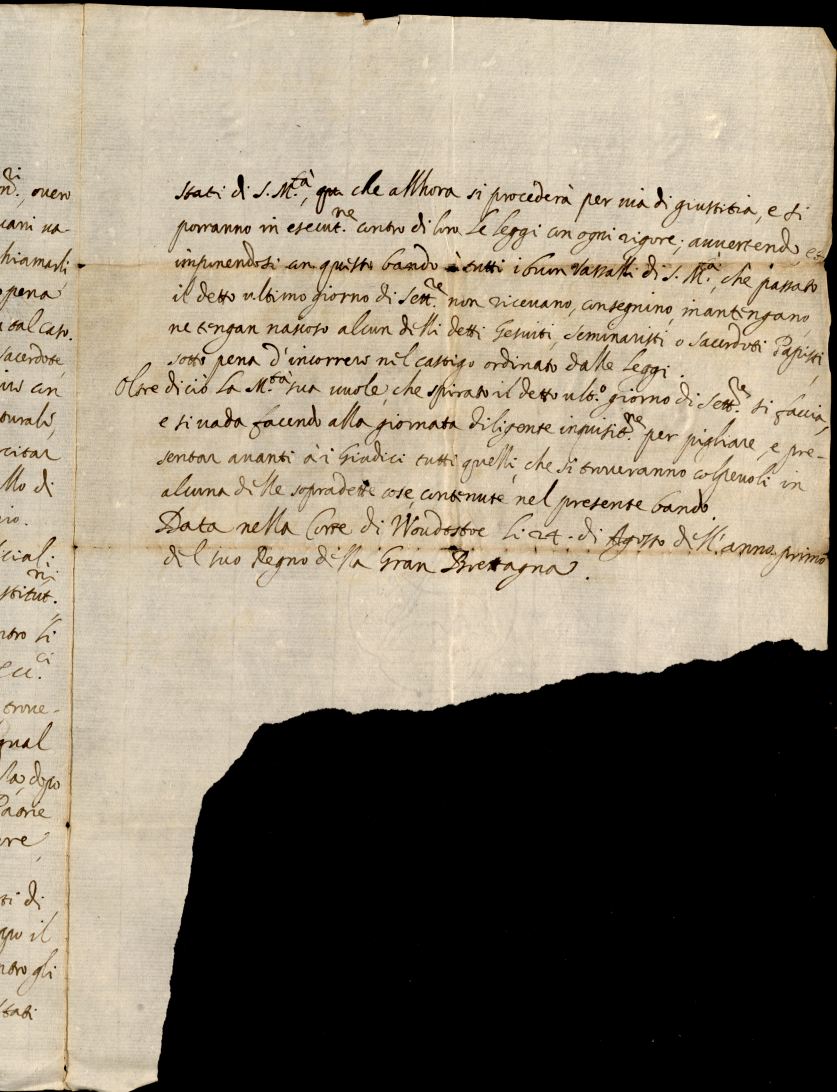 on.ri, overo
chiamarli
pena
tal caso.
sacerdote
turali,
rcitar
llo di
ciali
stitut.ni
ntro li
Ecc.ci
trove-
qual
la, dopo
ti di
opo il
ntro gli
stati
stati di S. M.tà, che allhora si procederà per via di giustitia, e si
porranno in esecut.ne contro di loro le leggi con ogni rigore; avvertendo, et
imponendosi con questo bando à tutti i buon Vassalli di S. M.tà, che passato
il detto ultimo giorno di Sett.re non ricevano, consegnino, mantengano,
ne tengan nascoso alcun delli detti Gesuiti, Seminaristi o Sacerdoti Papisti,
sotto pena d'incorrere nel castigo ordinato dalle leggi.
Oltre di ciò la M.tà sua vuole, che spirato il detto ult.o giorno di Sett.re si faccia,
e si vada facendo alla giornata diligente inquisit.ne per pigliare, e pre-
sentar avanti à i Giudici tutti quelli, che si troveranno colpevoli in
alcuna delle sopradette cose, contenute nel presente bando
Data nella Corte di Woudstoc li 24. di Agosto dell'anno primo
del suo Regno della Gran Brettagna.